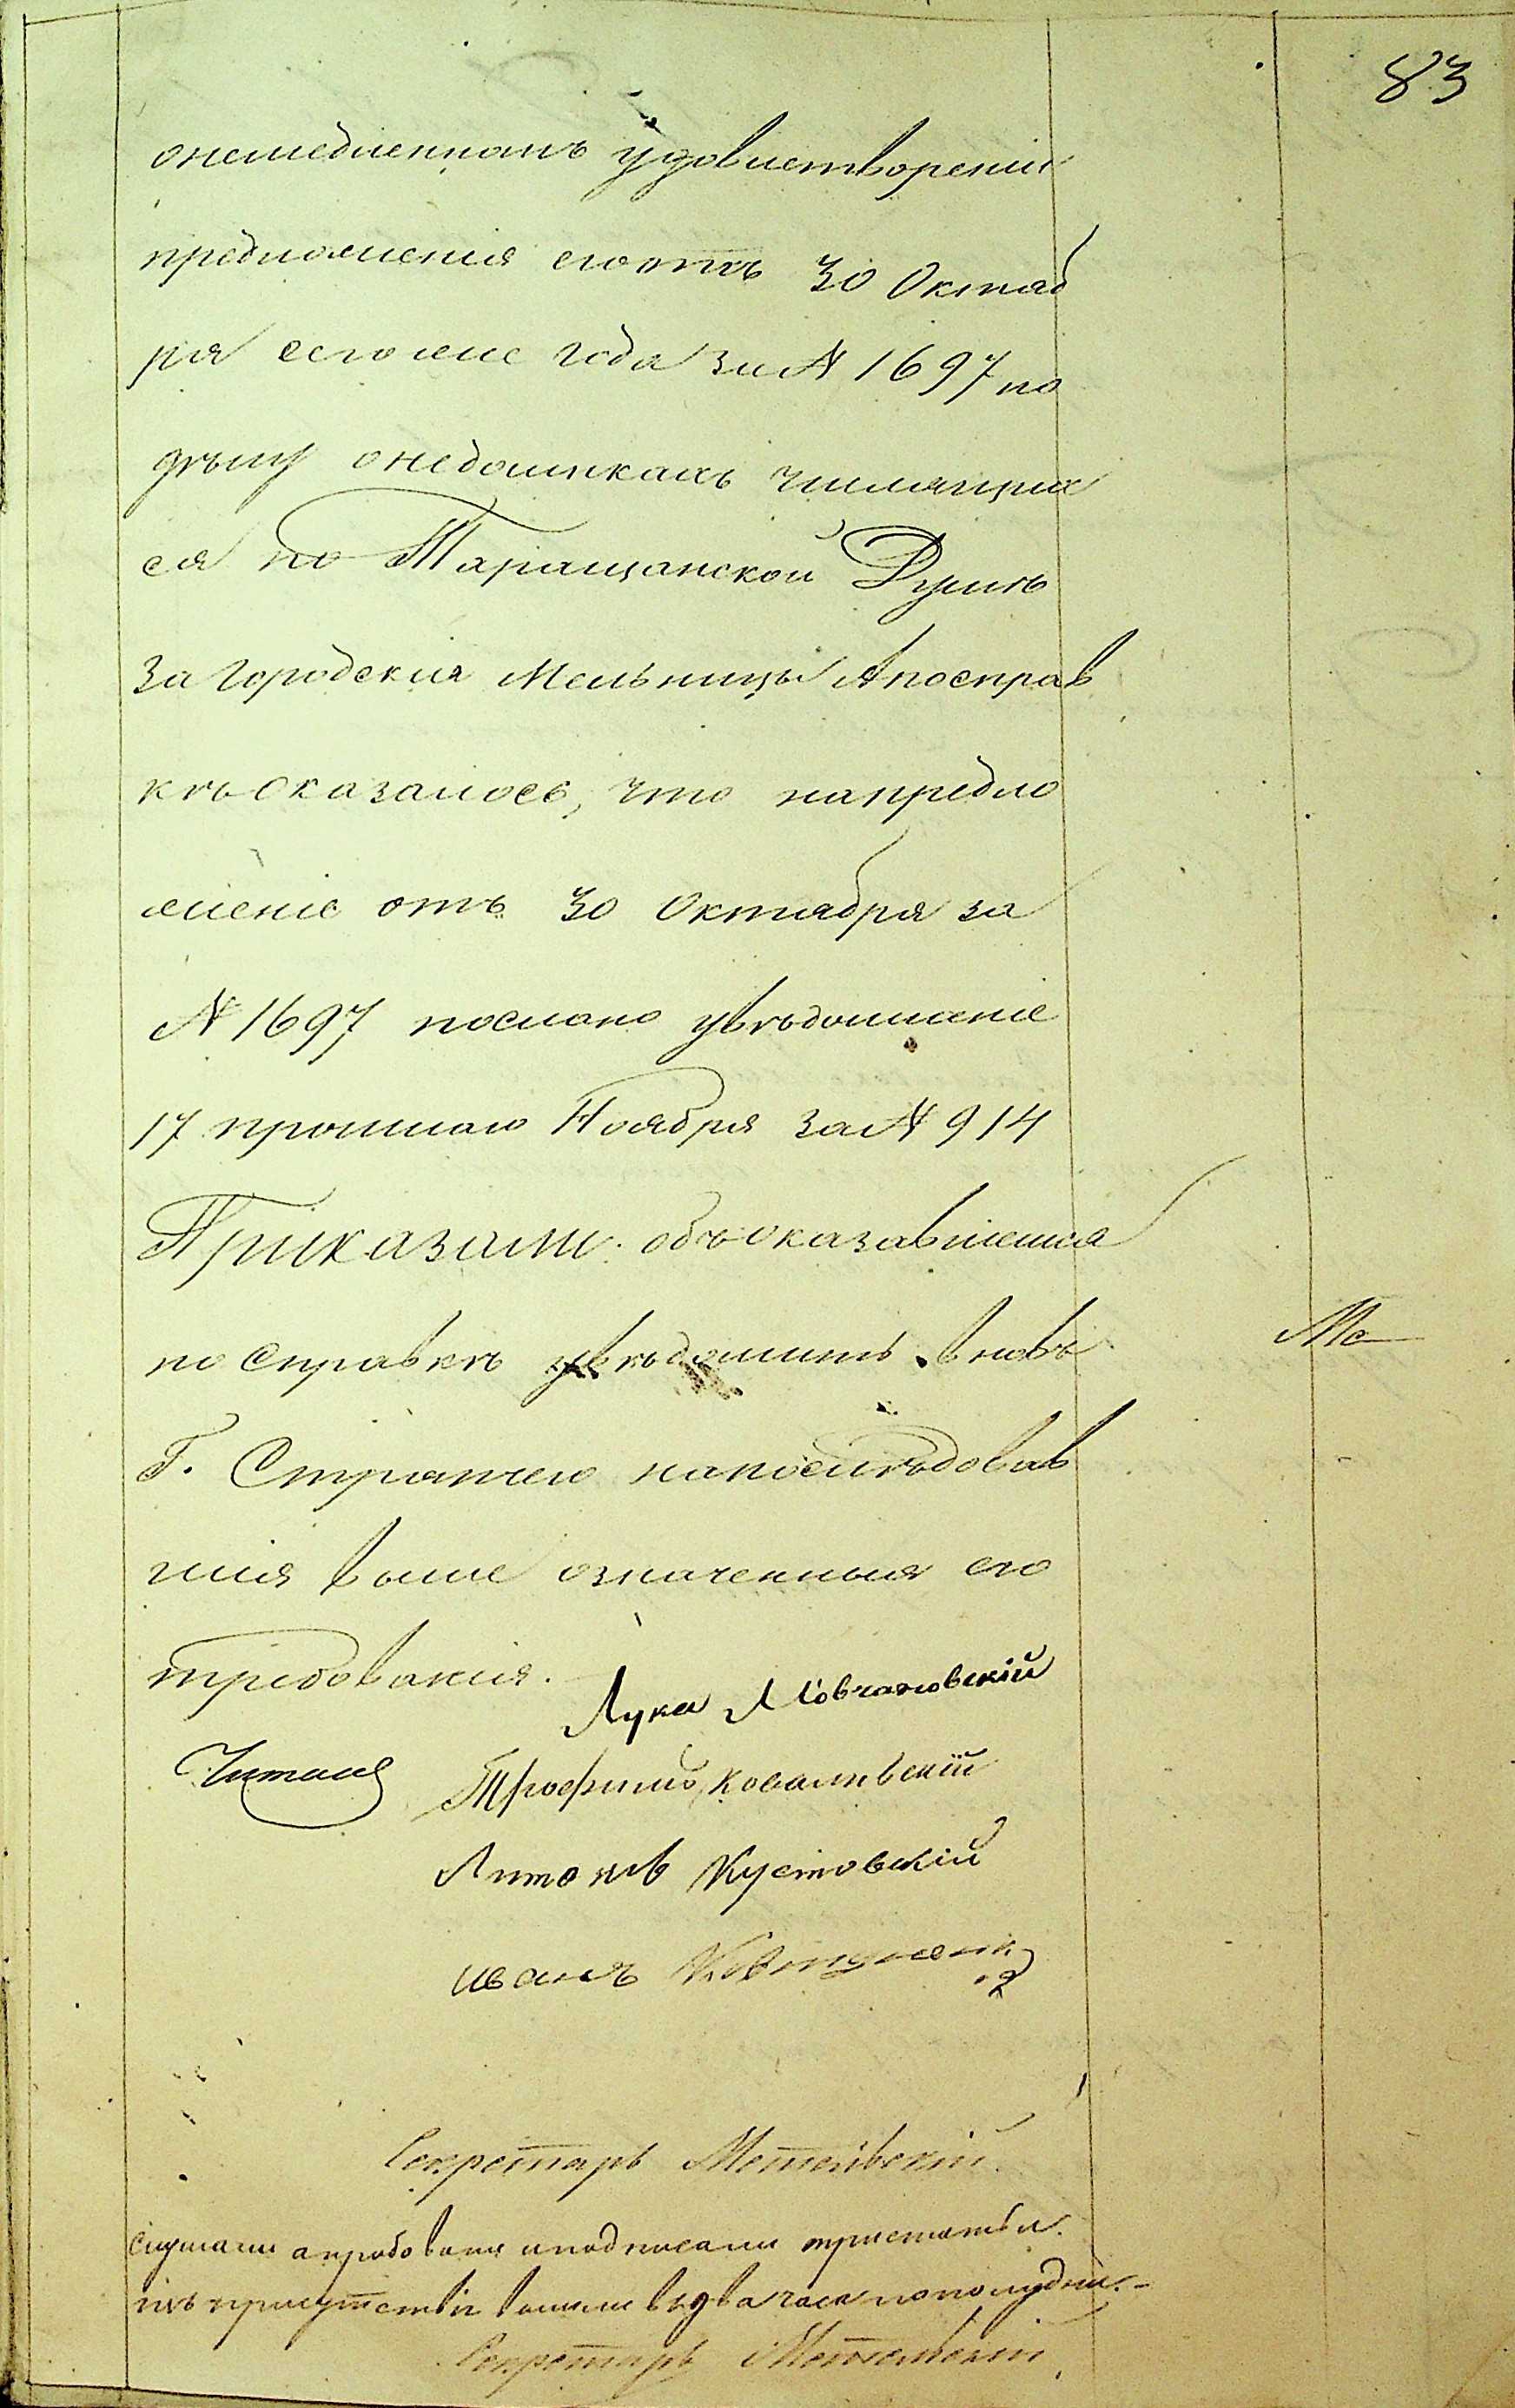 83
онемедленномъ удовлетвореніи
предложенія его отъ 30 Октяб
ря сего же года за № 1697 по
дѣлу о недоимкахъ числящих
ся по Таращанской Думѣ
за городскія Мельницы А по справ
кѣ оказалось, что на предло
женіе отъ 30 Октября за
№ 1697 послано увѣдомленіе
17 прошлаго Ноября за № 914
Приказали: объ оказавшемся
по справкѣ увѣдомить вновь
Г. Стряпчего на послѣдовав
шія выше означенныя его
требованія.
Лука Мовчановскій
Читалъ Трофимъ Ковалевскій
Антонъ Кустовскій
Иванъ Ковтуненко
Секретарь
Слушали апробовали и подписали три статьи.
изъ присутствія вышли въ два часа по полудни.
Секретарь